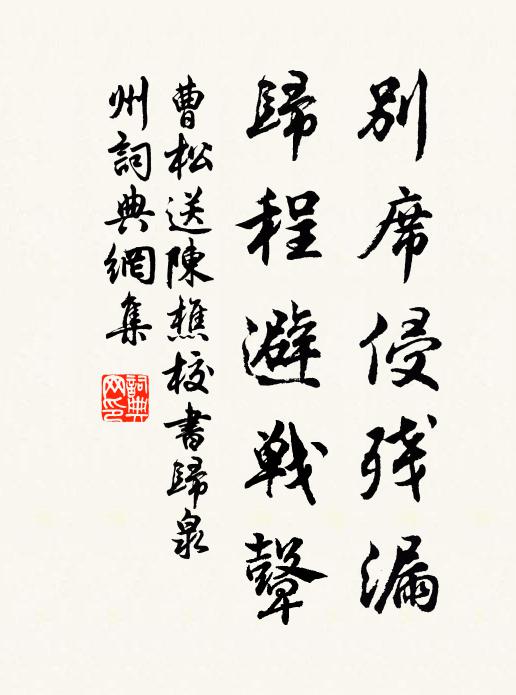 別席侵残漏
歸程避戦鼙
曹松送陳樵校書歸泉
州詞典網集
詞典网印